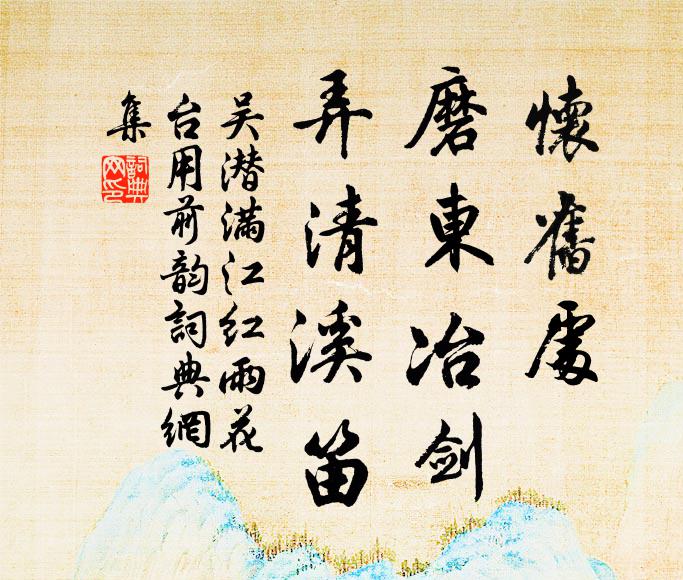 懷舊處
磨東冶剑
弄清溪笛
吴潜满江红雨花
台用前韵詞典網
集
詞典
网印